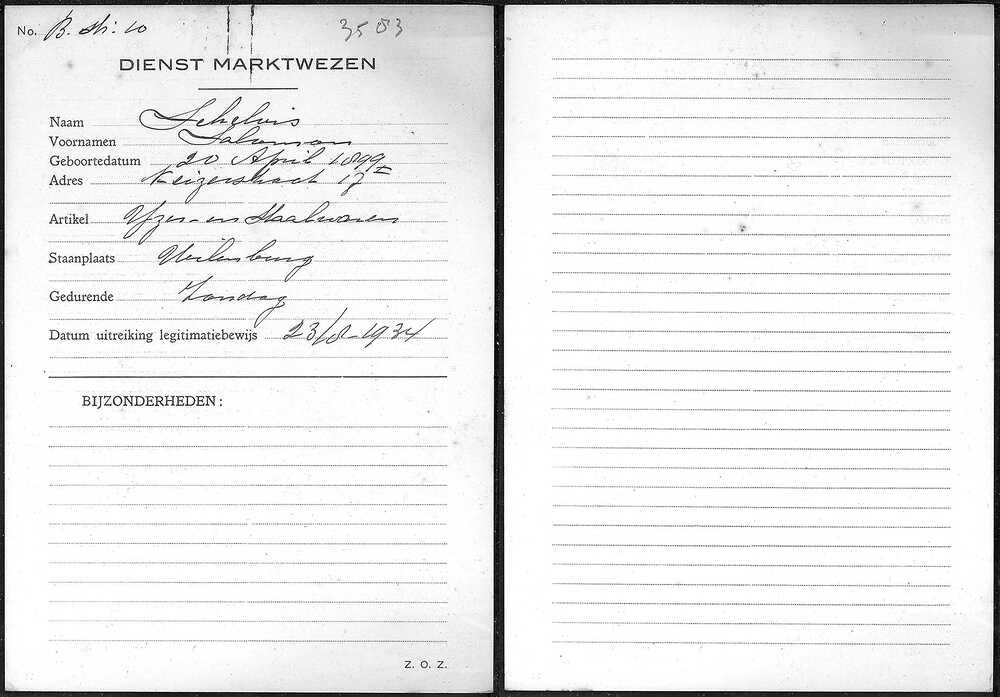 No. B. str. 10 3503
DIENST MARKTWEZEN
Naam Schelvis
Voornamen Salomon
Geboortedatum 20 April 1899
Adres Keizerstraat 17 I
Artikel Yzer- en Staalwaren
Staanplaats Uilenburg
Gedurende Zondag
Datum uitreiking legitimatiebewijs 23/8-1934
BIJZONDERHEDEN:
Z. O. Z.